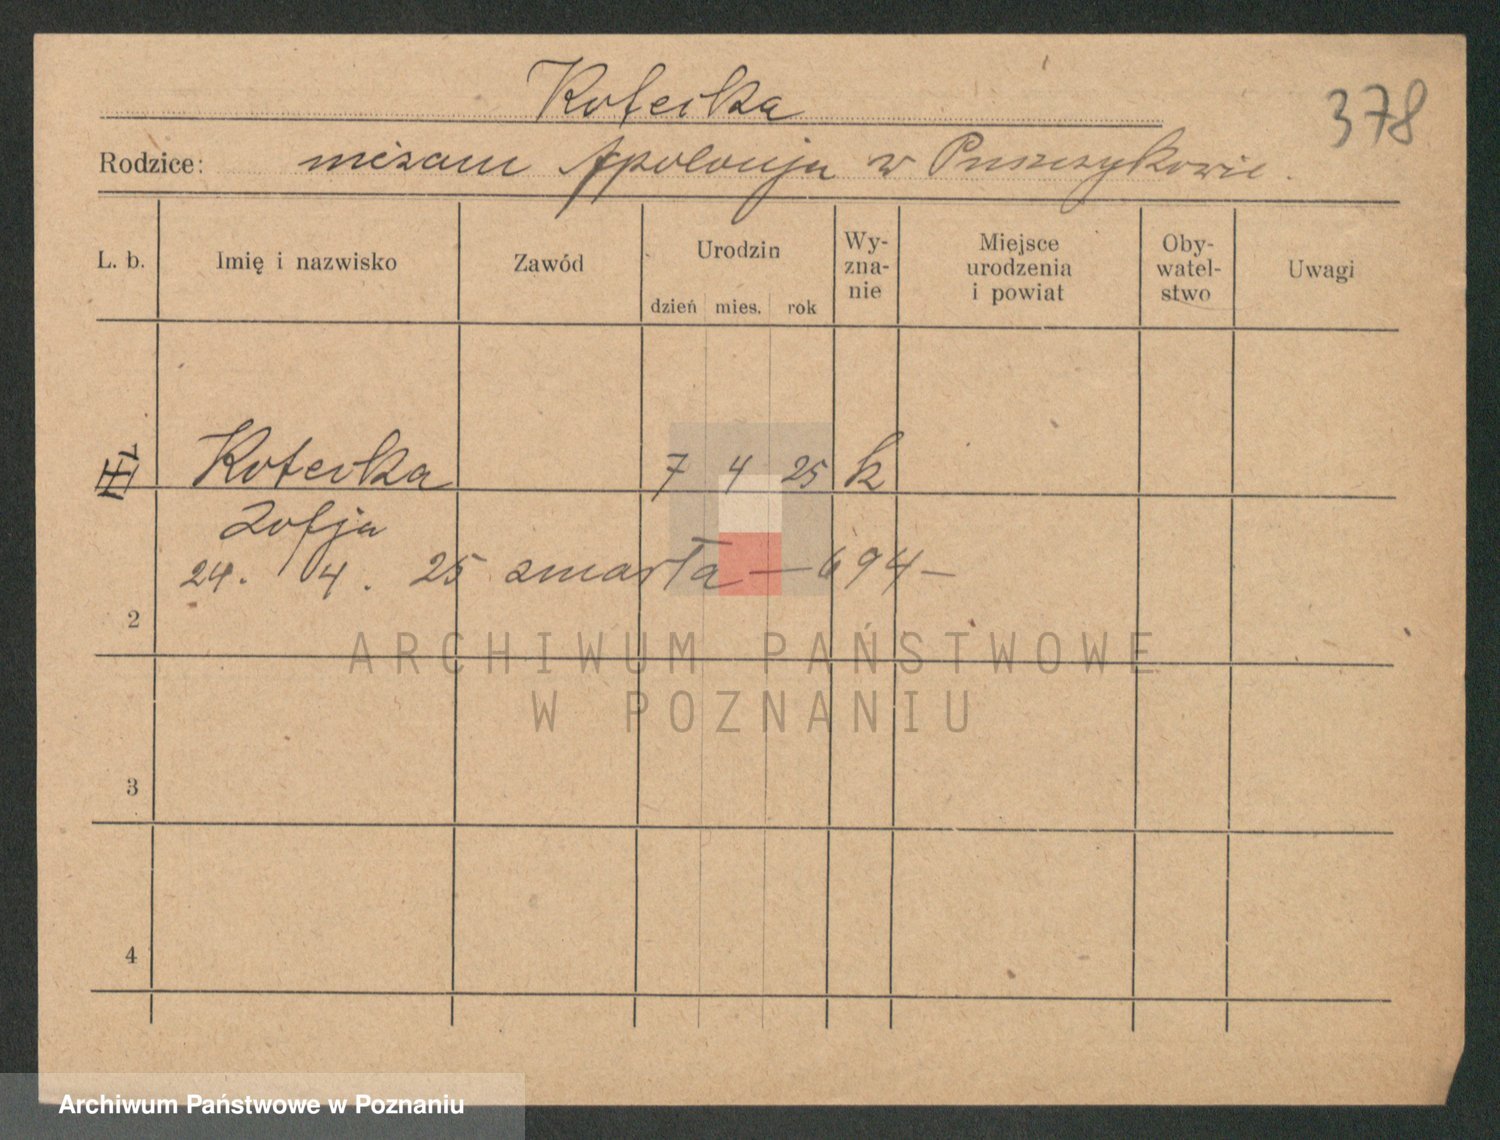 Koterka
378
Rodzice: niezam Apolonja w Puszczykowie.
L. b. Imię i nazwisko Zawód Urodzin dzień mies. rok Wy-zna-nie Miejsce urodzenia i powiat Oby-watel-stwo Uwagi
1 Koterka 7 4 25 k
Zofja
24. 4. 25 zmarła — 694 —
2
ARCHIWUM PAŃSTWOWE
W POZNANIU
3
4
Archiwum Państwowe w Poznaniu